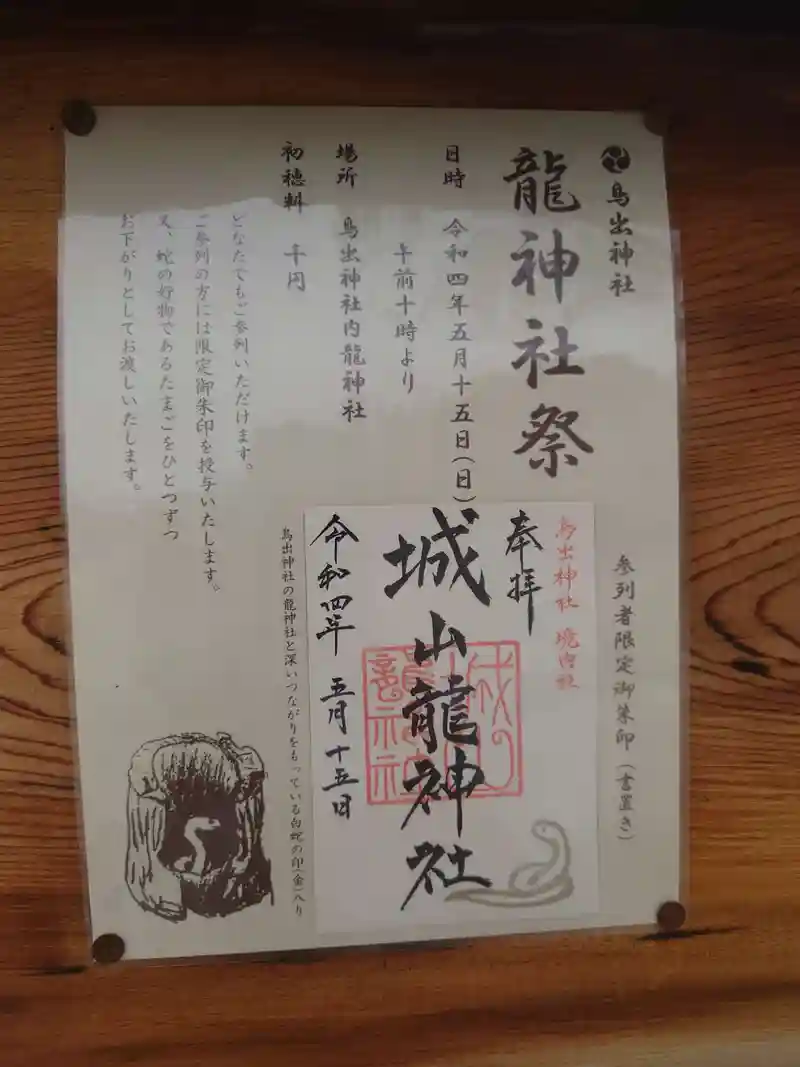 鳥出神社
龍神社祭
日時 令和四年五月十五日(日)
午前十時より
場所 鳥出神社内龍神社
初穂料 千円
どなたでもご参列いただけます。
ご参列の方には限定御朱印を授与いたします。
又、蛇の好物であるたまごをひとつずつ
お下がりとしてお渡しいたします。
参列者限定御朱印(書置き)
鳥出神社 境内社
奉拝
城山龍神社
令和四年 五月十五日
鳥出神社の龍神社と深いつながりをもっている白蛇の印(金)入り